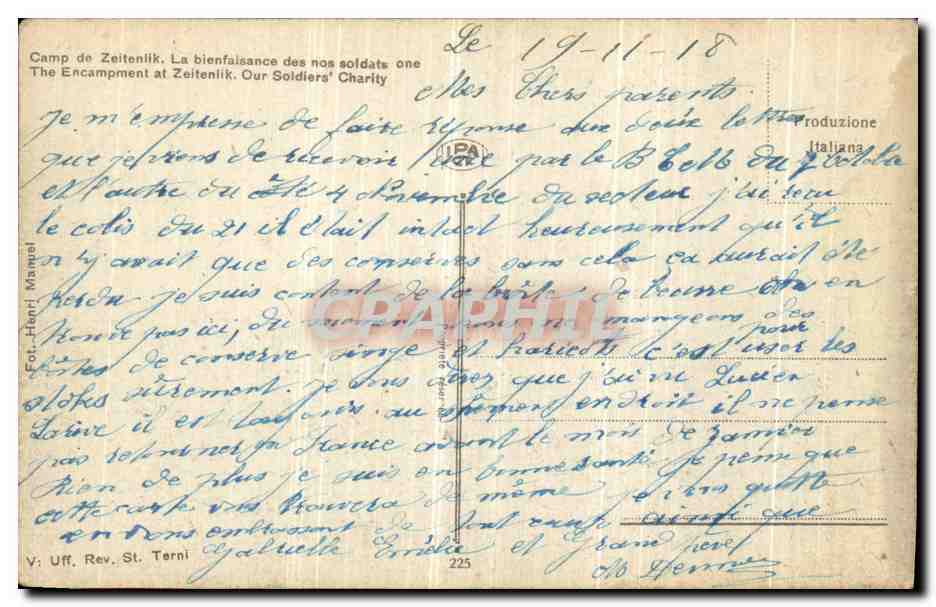 Le 19-11-18
Camp de Zeitenlik. La bienfaisance des nos soldats one
The Encampment at Zeitenlik. Our Soldiers' Charity
Mes Chers parents.
Je m'empresse de faire réponse aux deux lettres
Produzione
Italiana
IPA
CT
que je viens de recevoir l'une par le B Colb du 7 octobre
et l'autre du 4 Novembre du secteur j'ai reçu
le colis du 21 il était intact heureusement qu'il
n'y avait que des conserves sans cela ça aurait été
perdu je suis content de la boîte de beurre on en
trouve pas ici, du moment nous ne mangeons des
boîtes de conserve singe et haricots c'est pour user les
stoks sûrement. je vous direz que j'ai vu Lucien
Larive il est toujours au même endroit il ne pense
pas retourner en France avant le mois de Janvier
Rien de plus je suis en bonne santé je pense que
cette carte vous trouvera de même je vous quitte
en vous embrassant de tout cœur ainsi que
Gabrielle Emélie et Grand père
Fot. Henri Manuel
CPAPHIL
V: Uff. Rev. St. Terni
225